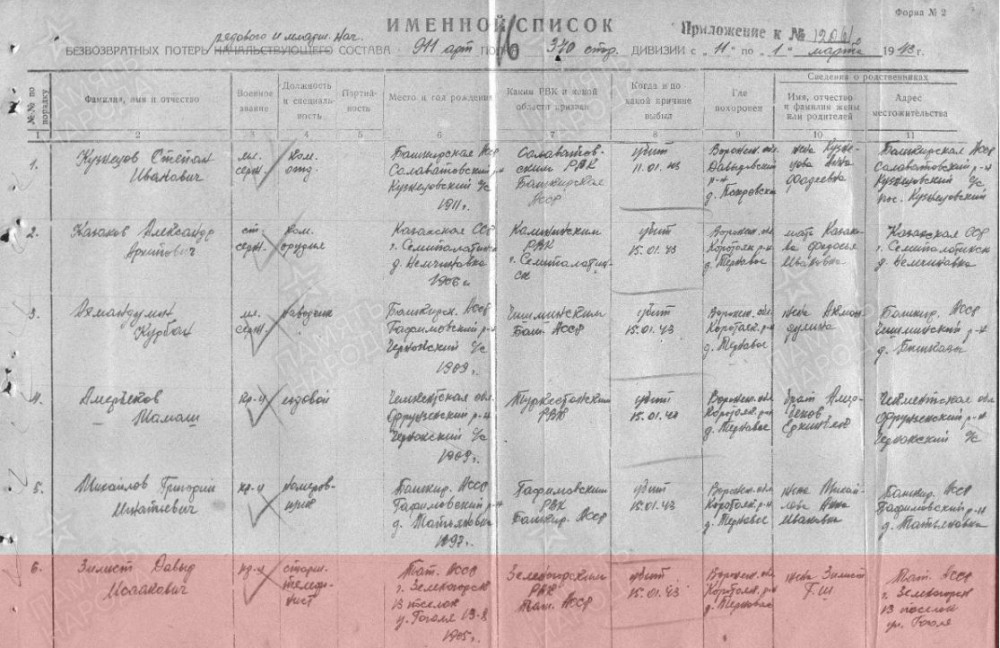 Форма № 2
ИМЕННОЙ СПИСОК
Приложение к №
рядового и младш. нач.
БЕЗВОЗВРАТНЫХ ПОТЕРЬ НАЧАЛЬСТВУЮЩЕГО СОСТАВА 911 арт 370 стр. ДИВИЗИИ с „11“ по „1“ марта 1943 г.
№№ по порядку
Фамилия, имя и отчество
Военное звание
Должность и специальность
Партийность
Место и год рождения
Каким РВК и какой области призван
Когда и по какой причине выбыл
Где похоронен
Сведения о родственниках
Имя, отчество и фамилия жены или родителей
Адрес местожительства
1 2 3 4 5 6 7 8 9 10 11
1. Кузнецов Степан Иванович
мл. серж.
ком. отд.
Башкирская АССР
Салаватовский р-н
Кузнецовский с/с
1911 г.
Салаватовским РВК
Башкирская АССР
убит
11.01.43
Воронеж. обл
Давыдовский р-н
жена Кузнецова
Фадеевна
Башкирская АССР
Салаватовский р-н
Кузнецовский с/с
пос. Кузнецовский
2. Казаков Александр
ст. серж.
ком. орудия
Казахская ССР
г. Семипалатинск
1906 г.
Калининским РВК
г. Семипалатинск
убит
15.01.43
Воронеж. обл
Коротояк. р-н
д. Терновое
мать Казакова
Ивановна
Казахская ССР
г. Семипалатинск
3.
Курбан
мл. серж.
наводчик
Башкирск. АССР
Гафимовский р-н
1909 г.
Чишминским
Баш. АССР
убит
15.01.43
Воронеж. обл
Коротояк. р-н
д. Терновое
жена
Башкир. АССР
Чишминский р-н
4.
кр-ц
ездовой
Чимкентская обл.
Фрунзенский р-н
1909 г.
Туркестанским РВК
убит
15.01.43
Воронеж. обл
Коротояк. р-н
д. Терновое
брат
Чимкентская обл
Фрунзенский р-н
5. Михайлов Григорий
Игнатьевич
кр-ц
Башкир. АССР
Гафимовский р-н
1897 г.
Гафимовским РВК
Башкир. АССР
убит
15.01.43
Воронеж. обл
Коротояк. р-н
д. Терновое
жена Михайлова
Ивановна
Башкир. АССР
Гафимовский р-н
6. Зилист Давыд
Исаакович
кр-ц
старш. телефонист
Тат. АССР
г. Зеленогорск
13 поселок
у. Гоголя 13-8
1905 г.
Зеленогорским РВК
Тат. АССР
убит
15.01.43
Воронеж. обл
Коротояк. р-н
д. Терновое
жена Зилист
Г.Ш.
Тат. АССР
г. Зеленогорск
13 поселок
ул. Гоголя
ПАМЯТЬ НАРОДА